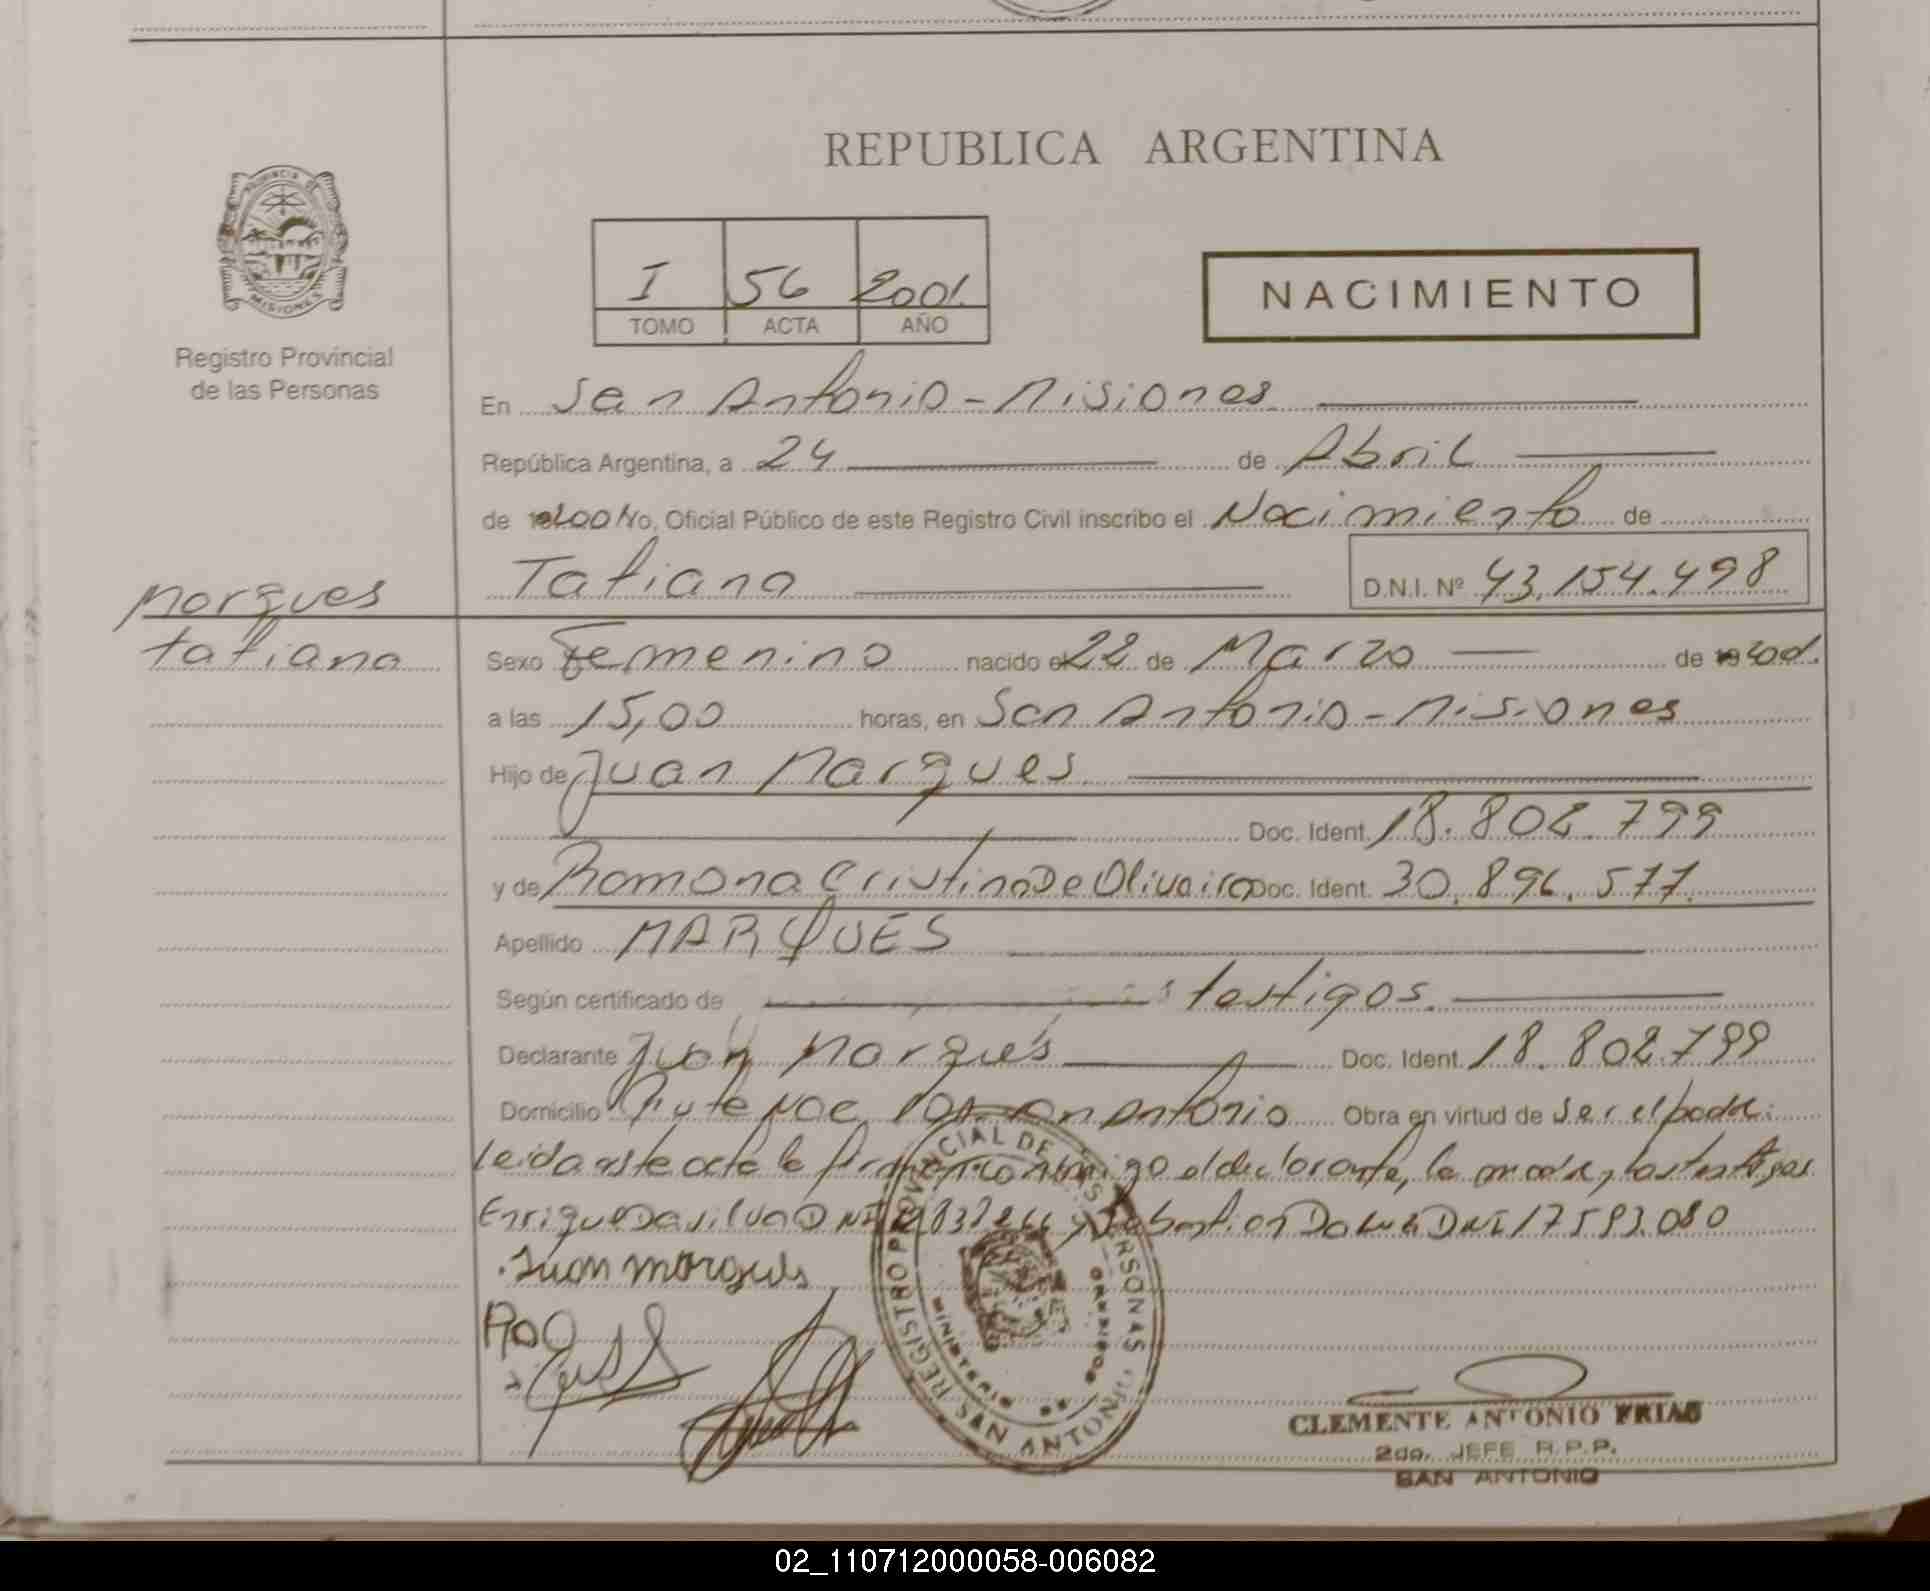 REPUBLICA ARGENTINA
PROVINCIA DE
MISIONES
Registro Provincial
de las Personas
I 56 2001.
TOMO ACTA AÑO
NACIMIENTO
En San Antonio - Misiones
República Argentina, a 24 de Abril
de 2001 Yo, Oficial Público de este Registro Civil inscribo el Nacimiento de
Marques
Tatiana
Tatiana D.N.I. Nº 43.154.498
Sexo Femenino nacido el 22 de Marzo de 2001.
a las 15,00 horas, en San Antonio - Misiones
Hijo de Juan Marques
Doc. Ident. 18.802.799
y de Ramona Cristina De Olivaira Doc. Ident. 30.896.577.
Apellido MARQUES
Según certificado de testigos.
Declarante Juan Marques Doc. Ident. 18.802.799
Domicilio San Antonio Obra en virtud de ser el padre.
Leida este acta la firman conmigo el declarante, la madre, los testigos
Enrique Da silva DNI y Sebastian Da Luz DNI 17593.080
Juan marques
REGISTRO PROVINCIAL DE LAS PERSONAS
MINISTERIO DE GOBIERNO
SAN ANTONIO
CLEMENTE ANTONIO FRIAS
2do. JEFE R.P.P.
SAN ANTONIO
02_110712000058-006082